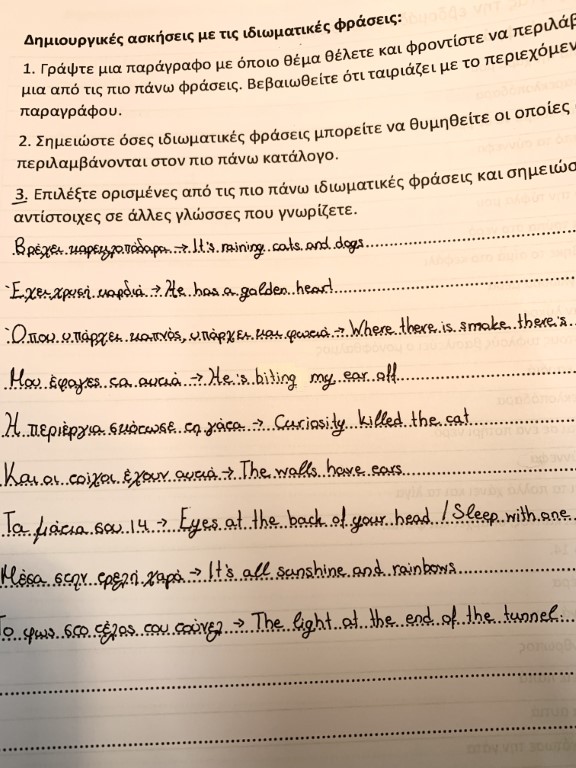 Δημιουργικές ασκήσεις με τις ιδιωματικές φράσεις:
1. Γράψτε μια παράγραφο με όποιο θέμα θέλετε και φροντίστε να
μια από τις πιο πάνω φράσεις. Βεβαιωθείτε ότι ταιριάζει με το
παραγράφου.
2. Σημειώστε όσες ιδιωματικές φράσεις μπορείτε να θυμηθείτε οι οποίες
περιλαμβάνονται στον πιο πάνω κατάλογο.
3. Επιλέξτε ορισμένες από τις πιο πάνω ιδιωματικές φράσεις και
αντίστοιχες σε άλλες γλώσσες που γνωρίζετε.
Βρέχει καρεκλοπόδαρα → It's raining cats and dogs
Έχει χρυσή καρδιά → He has a golden heart
Όπου υπάρχει καπνός, υπάρχει και φωτιά → Where there is smoke there's
Μου έφαγες τα αυτιά → He's biting my ear off
Η περιέργια σκότωσε τη γάτα → Curiosity killed the cat
Και οι τοίχοι έχουν αυτιά → The walls have ears
Τα μάτια σου 14 → Eyes at the back of your head / Sleep with one
Μέσα στην τρελή χαρά → It's all sunshine and rainbows
Το φως στο τέλος του τούνελ → The light at the end of the tunnel